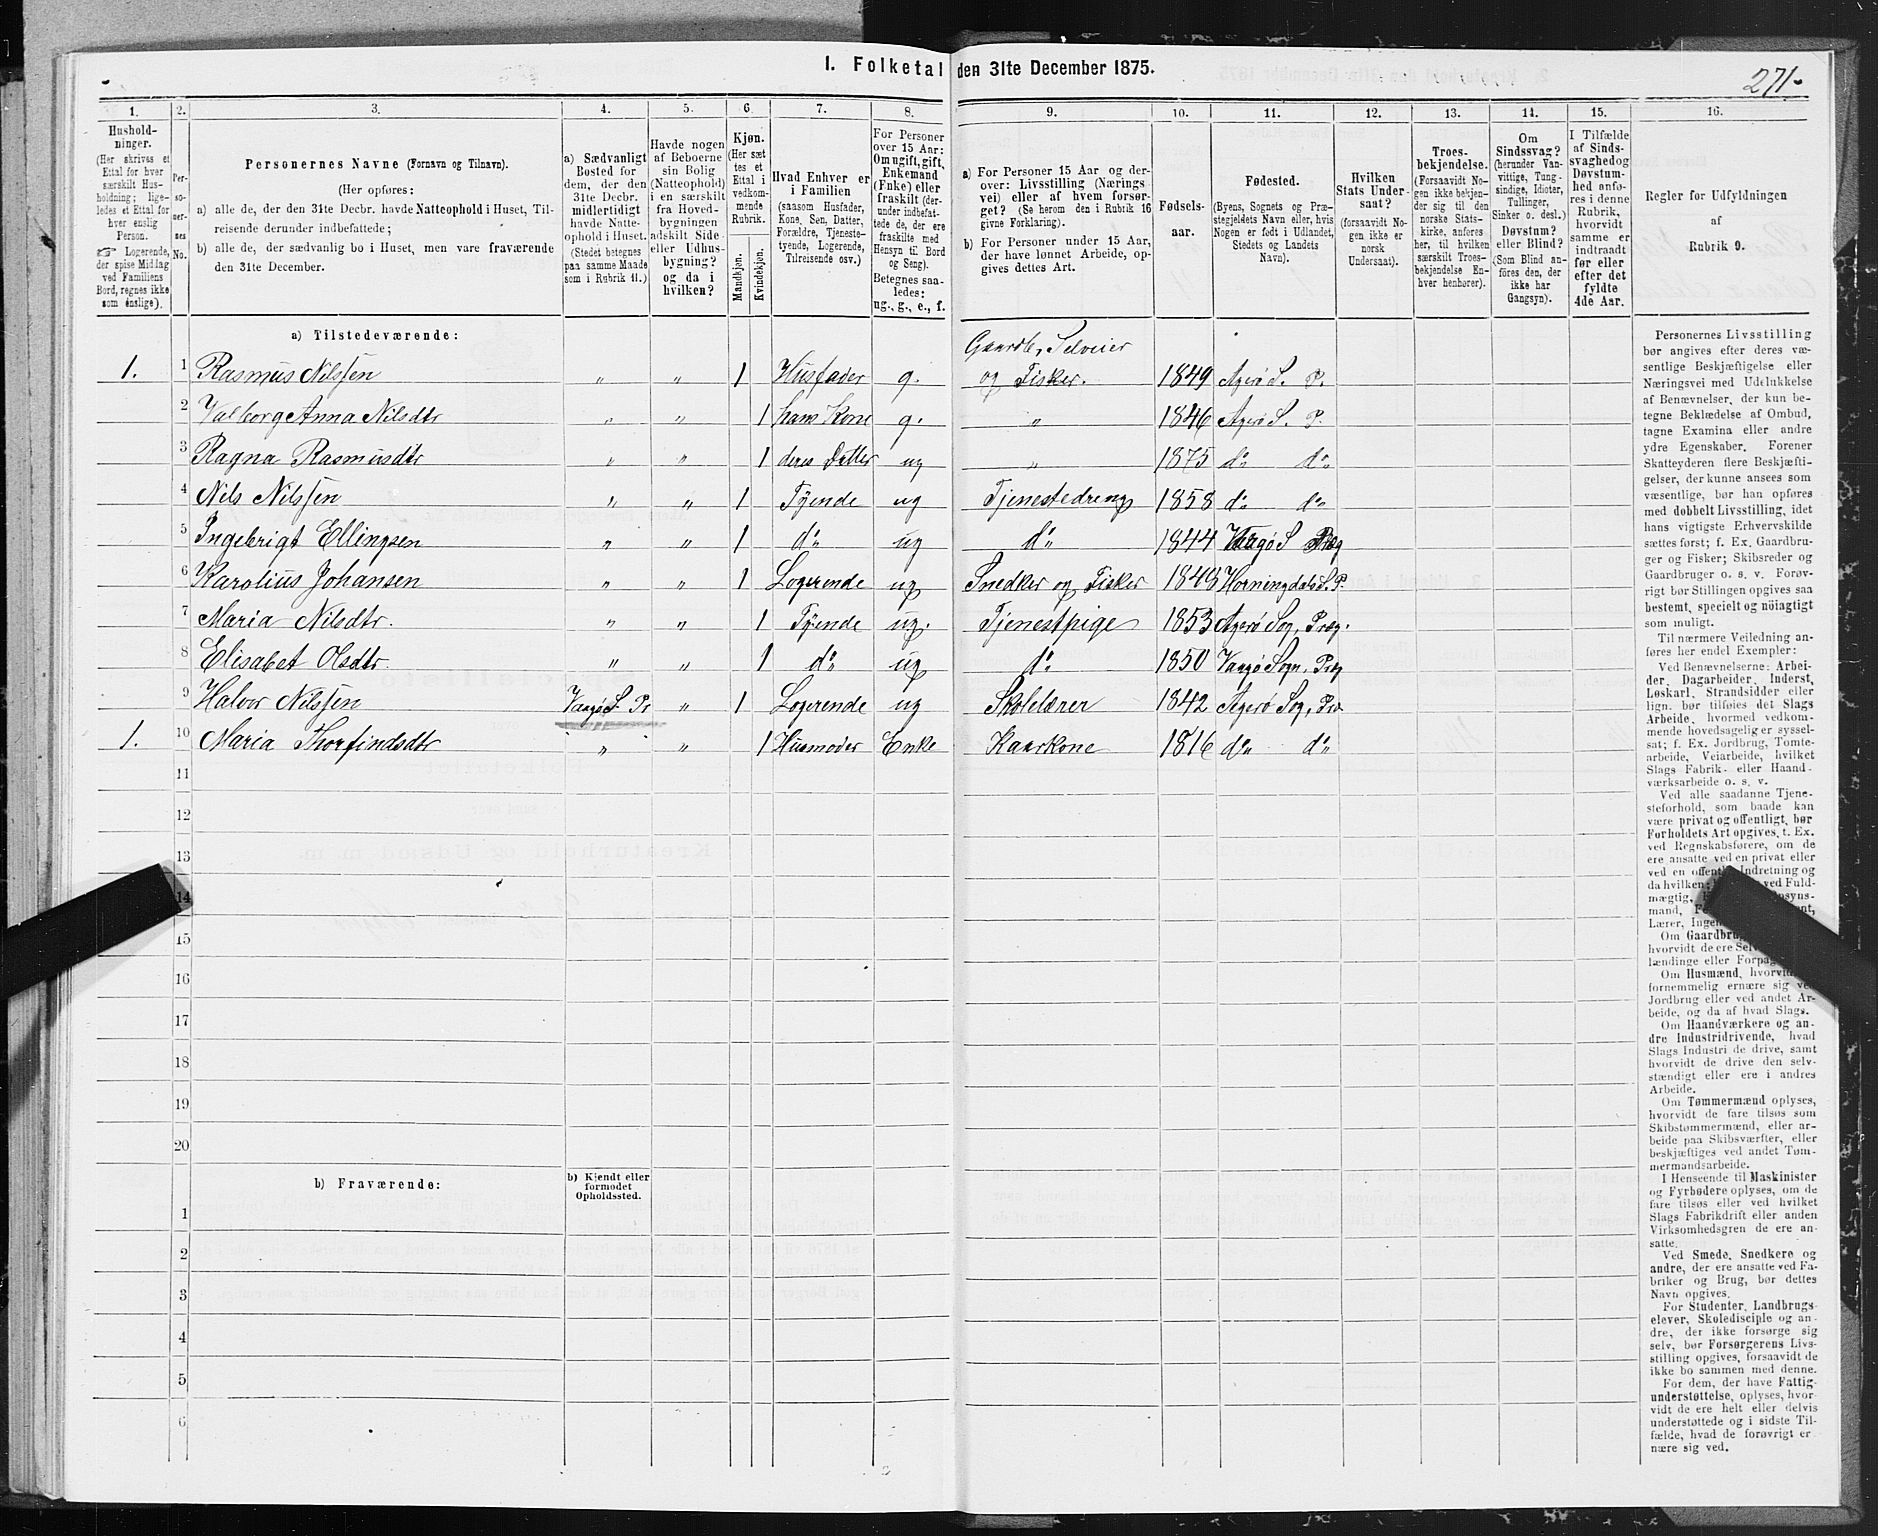 1. Folketal den 31te December 1875.
271.
1.
Hushold-
ninger.
(Her skrives et
Ettal for hver
særskilt Hus-
holdning; lige-
ledes et Ettal for
hver enslig
Person.
☞ Logerende,
der spise Middag
ved Familiens
Bord, regnes ikke
som enslige).
2.
Per-
so-
ner-
nes
No.
3.
Personernes Navne (Fornavn og Tilnavn).
(Her opføres:
a) alle de, der den 31te Decbr. havde Natteophold i Huset, Til-
reisende derunder indbefattede;
b) alle de, der sædvanlig bo i Huset, men vare fraværende
den 31te December.
4.
a) Sædvanligt
Bosted for
dem, der den
31te Decbr.
midlertidigt
havde Natte-
ophold i Huset.
(Stedet betegnes
paa samme Maade
som i Rubrik 11.)
5.
Havde nogen
af Beboerne
sin Bolig
(Natteophold)
i en særskilt
fra Hoved-
bygningen
adskilt Side-
eller Udhus-
bygning?
og da i
hvilken?
6.
Kjøn.
(Her sæt
tes et
Ettal i
vedkom-
mende
Rubrik.
Mandkjøn.
Kvindekjøn.
7.
Hvad Enhver er
i Familien
(saasom Husfader,
Kone, Søn, Datter,
Forældre, Tjeneste-
tyende, Logerende,
Tilreisende osv.)
8.
For Personer
over 15 Aar:
Om ugift, gift,
Enkemand
(Enke) eller
fraskilt (der-
under indbefat-
tede de, der ere
fraskilte med
Hensyn til Bord
og Seng).
Betegnes saa-
ledes:
ug., g., e., f.
9.
a) For Personer 15 Aar og der-
over: Livsstilling (Nærings-
vei) eller af hvem forsør-
get? (Se herom den i Rubrik 16
givne Forklaring).
b) For Personer under 15 Aar,
der have lønnet Arbeide, op-
gives dettes Art.
10.
Fødsels-
aar.
11.
Fødested.
(Byens, Sognets og Præ-
stegjeldets Navn eller, hvis
Nogen er født i Udlandet,
Stedets og Landets
Navn).
12.
Hvilken
Stats Under-
saat?
(forsaavidt No-
gen ikke er
norsk
Undersaat).
13.
Troes-
bekjendelse.
(Forsaavidt No-
gen ikke bekjen-
der sig til den
norske Stats-
kirke, anføres
her, til hvilken
særskilt Troes-
bekjendelse En-
hver henhører).
14.
Om
Sindssvag?
(herunder Van-
vittige, Tung-
sindige, Idioter,
Tullinger,
Sinker o. desl.)
Døvstum?
eller Blind?
(Som Blind an-
føres den, der
ikke har
Gangsyn).
15.
I Tilfælde
af Sinds-
svaghed og
Døvstum-
hed anfø-
res i denne
Rubrik,
hvorvidt
samme er
indtraadt
før eller
efter det
fyldte
4de Aar.
16.
Regler for Udfyldningen
af
Rubrik 9.
a) Tilstedeværende:
Gaardb. Selveier
1. 1 Rasmus Nilssen " " 1 Husfader g. og Fisker. 1849 Agerø S. P.
2 Valborg Anna Nilsdtr " " 1 hans Kone g. " 1846 Agerø S. P.
3 Ragna Rasmusdtr " " 1 deres Datter ug " 1875 do do
4 Nils Nilssen " " 1 Tyende ug Tjenestedreng 1858 do do
5 Ingebrigt Ellingsen " " 1 do ug do 1844 Vaagø S Præg
6 Karolius Johansen " " 1 Logerende ug Snedker og Fisker 1848 Horningdals S. P.
7 Maria Nilsdtr. " " 1 Tyende ug. Tjenestpige 1853 Agerø Sog, Præg.
8 Elisabet Olsdtr. " " 1 do ug do 1850 Vaagø Sogn, Præg
9 Halvor Nilssen Vaagø S. Pr " 1 Logerende ug Skolelærer 1842 Agerø Sog, Præ
1. 10 Maria Thorfindsdtr " " 1 Husmoder Enke Kaarkone 1816 do do
11
12
13
14
15
16
17
18
19
20
b) Fraværende:
b) Kjendt eller
formodet
Opholdssted.
1
2
3
4
5
6
Personernes Livsstilling
bør angives efter deres væ-
sentlige Beskjæftigelse eller
Næringsvei med Udelukkelse
af Benævnelser, der kun be-
tegne Beklædelse af Ombud,
tagne Examina eller andre
ydre Egenskaber. Forener
Skatteyderen flere Beskjæfti-
gelser, der kunne ansees som
væsentlige, bør han opføres
med dobbelt Livsstilling, idet
hans vigtigste Erhvervskilde
sættes først; f. Ex. Gaardbru-
ger og Fisker; Skibsreder og
Gaardbruger o. s. v. Forøv-
rigt bør Stillingen opgives saa
bestemt, specielt og nöiagtigt
som muligt.
Til nærmere Veiledning an-
føres her endel Exempler:
Ved Benævnelserne: Arbei-
der, Dagarbeider, Inderst,
Løskarl, Strandsidder eller
lign. bør tilføies det Slags
Arbeide, hvormed vedkom-
mende hovedsagelig er syssel-
sat; f. Ex. Jordbrug, Tomte-
arbeide, Veiarbeide, hvilket
Slags Fabrik- eller Haand-
værksarbeide o. s. v.
Ved alle saadanne Tjene-
steforhold, som baade kan
være privat og offentligt, bør
Forholdets Art opgives, t. Ex.
ved Regnskabsførere, om de
ere ansatte ved en privat eller
ved en offentl Indretning og
da hvilken; ved Fuld-
mægtig, psyns-
mand, F nt,
Lærer, Inge
Om Gaardbru
hvorvidt de ere Sel
lændinge eller Forpa
Om Husmænd, hvorvi
fornemmelig ernære sig ve
Jordbrug eller ved andet Ar-
beide, og da af hvad Slags.
Om Haandværkere og an-
dre Industridrivende, hvad
Slags Industri de drive, samt
hvorvidt de drive den selv-
stændigt eller ere i andres
Arbeide.
Om Tømmermænd oplyses,
hvorvidt de fare tilsøs som
Skibstømmermænd, eller ar-
beide paa Skibsværfter, eller
beskjæftiges ved andet Tøm-
mermandsarbeide.
I Henseende til Maskinister
og Fyrbødere oplyses, om de
fare tilsøs eller ved hvilket
Slags Fabrikdrift eller anden
Virksomhedsgren de ere an-
satte.
Ved Smede, Snedkere og
andre, der ere ansatte ved Fa-
briker og Brug, bør dettes
Navn opgives.
For Studenter, Landbrugs-
elever, Skoledisciple og an-
dre, der ikke forsørge sig
selv, bør Forsørgerens Livs-
stilling opgives, forsaavidt de
ikke bo sammen med denne.
For dem, der have Fattig-
understøttelse, oplyses, hvor-
vidt de ere helt eller delvis
understøttede og i sidste Til-
fælde, hvad de forøvrigt er-
nære sig ved.